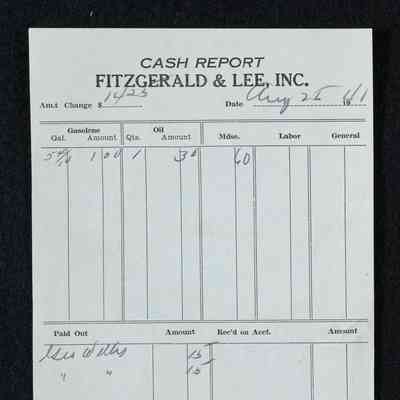 CASH REPORT
FITZGERALD & LEE, INC.
Am.t Change $ 1423 Date Aug 25 1941
Gasolene Oil
Gal. Amount Qts. Amount Mdse. Labor General
5 1 00 1 30 60
Paid Out Amount Rec'd on Acct. Amount
15
" " 15